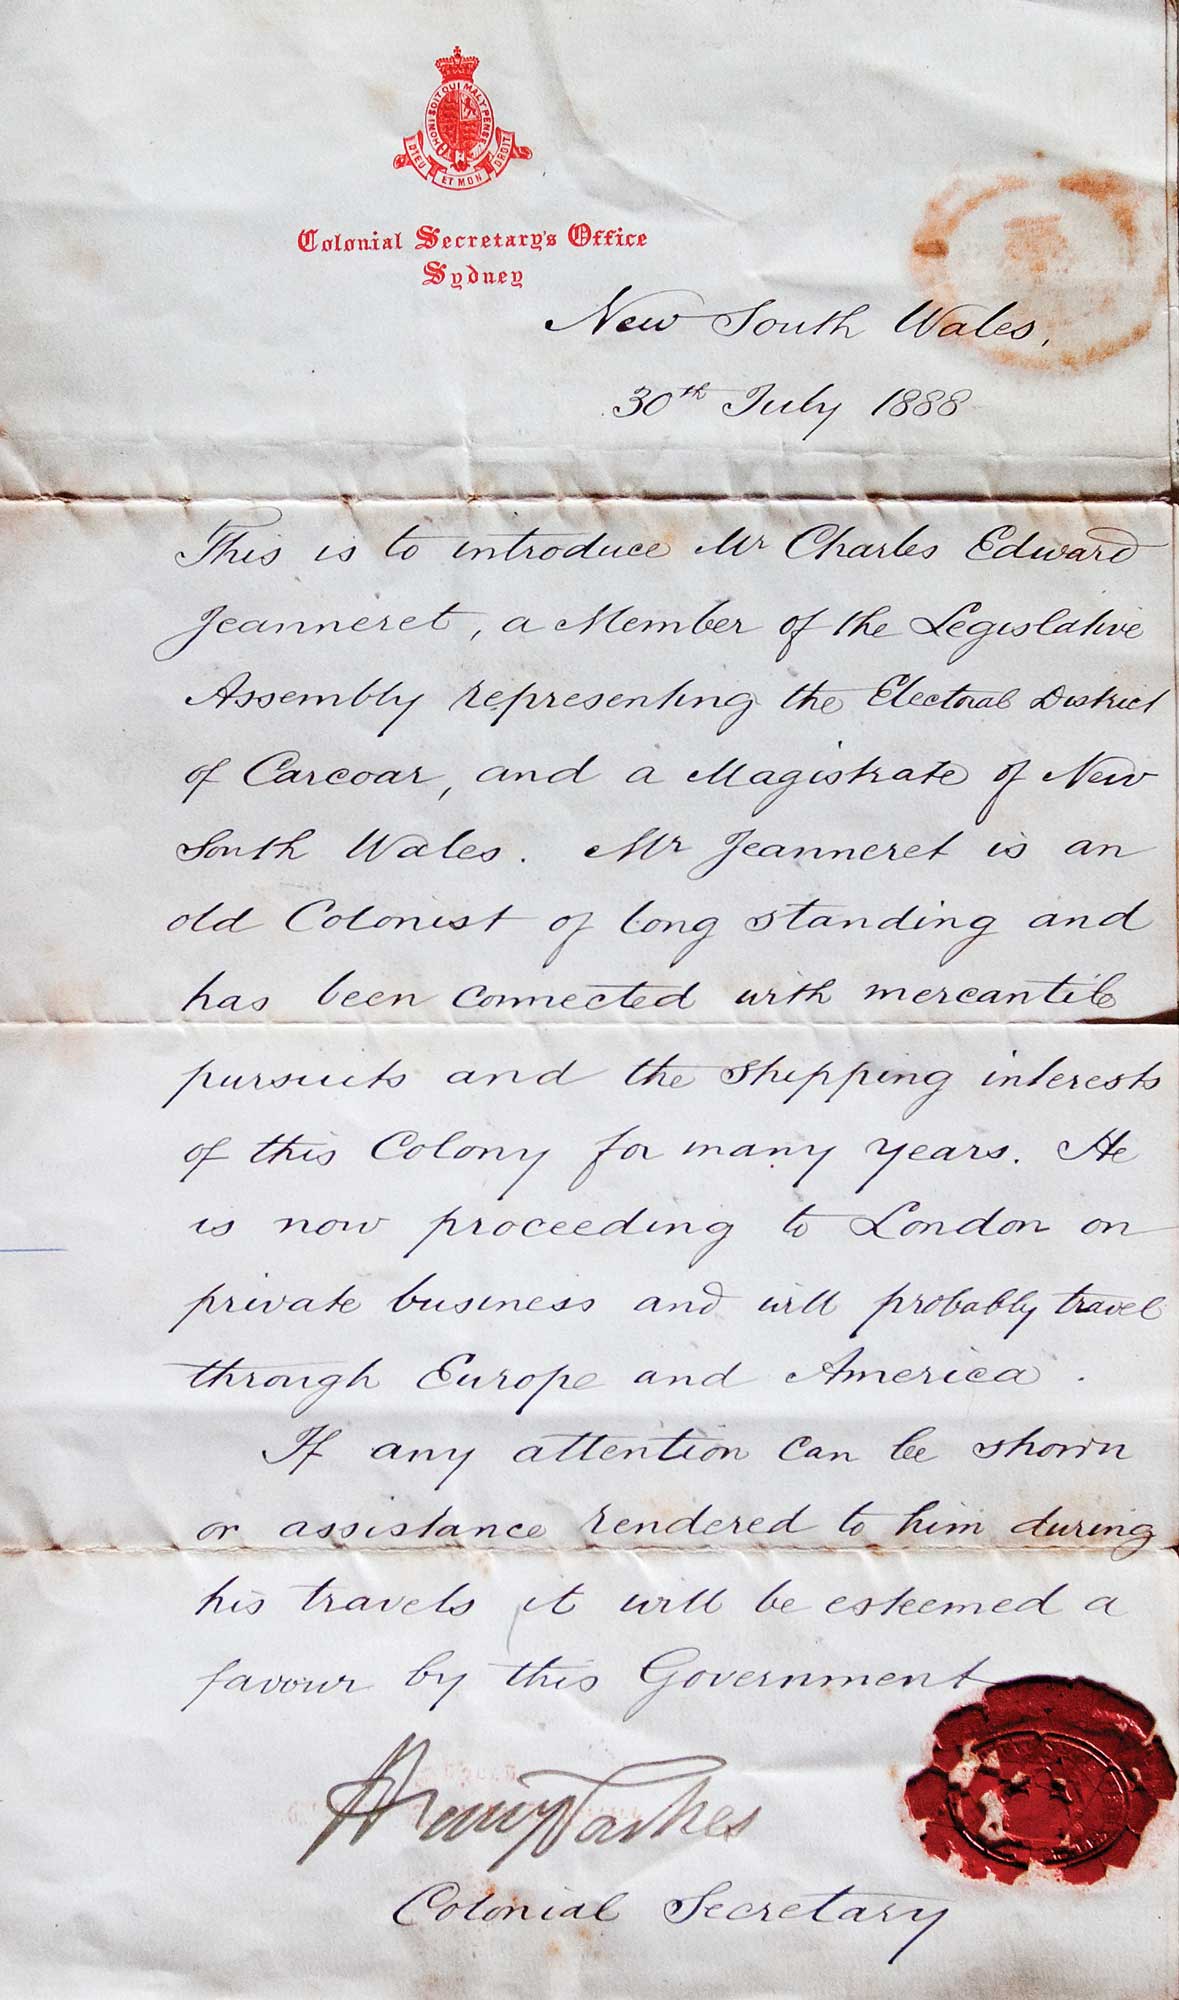 HONI SOIT QUI MAL Y PENSE
DIEU ET MON DROIT
Colonial Secretary's Office
Sydney
New South Wales,
30th July 1888
This is to introduce Mr Charles Edward
Jeanneret, a Member of the Legislative
Assembly representing the Electoral District
of Carcoar, and a Magistrate of New
South Wales. Mr Jeanneret is an
old Colonist of long standing and
has been connected with mercantile
pursuits and the shipping interests
of this Colony for many years. He
is now proceeding to London on
private business and will probably travel
through Europe and America.
If any attention can be shown
or assistance rendered to him during
his travels it will be esteemed a
favour by this Government
Henry Parkes
Colonial Secretary